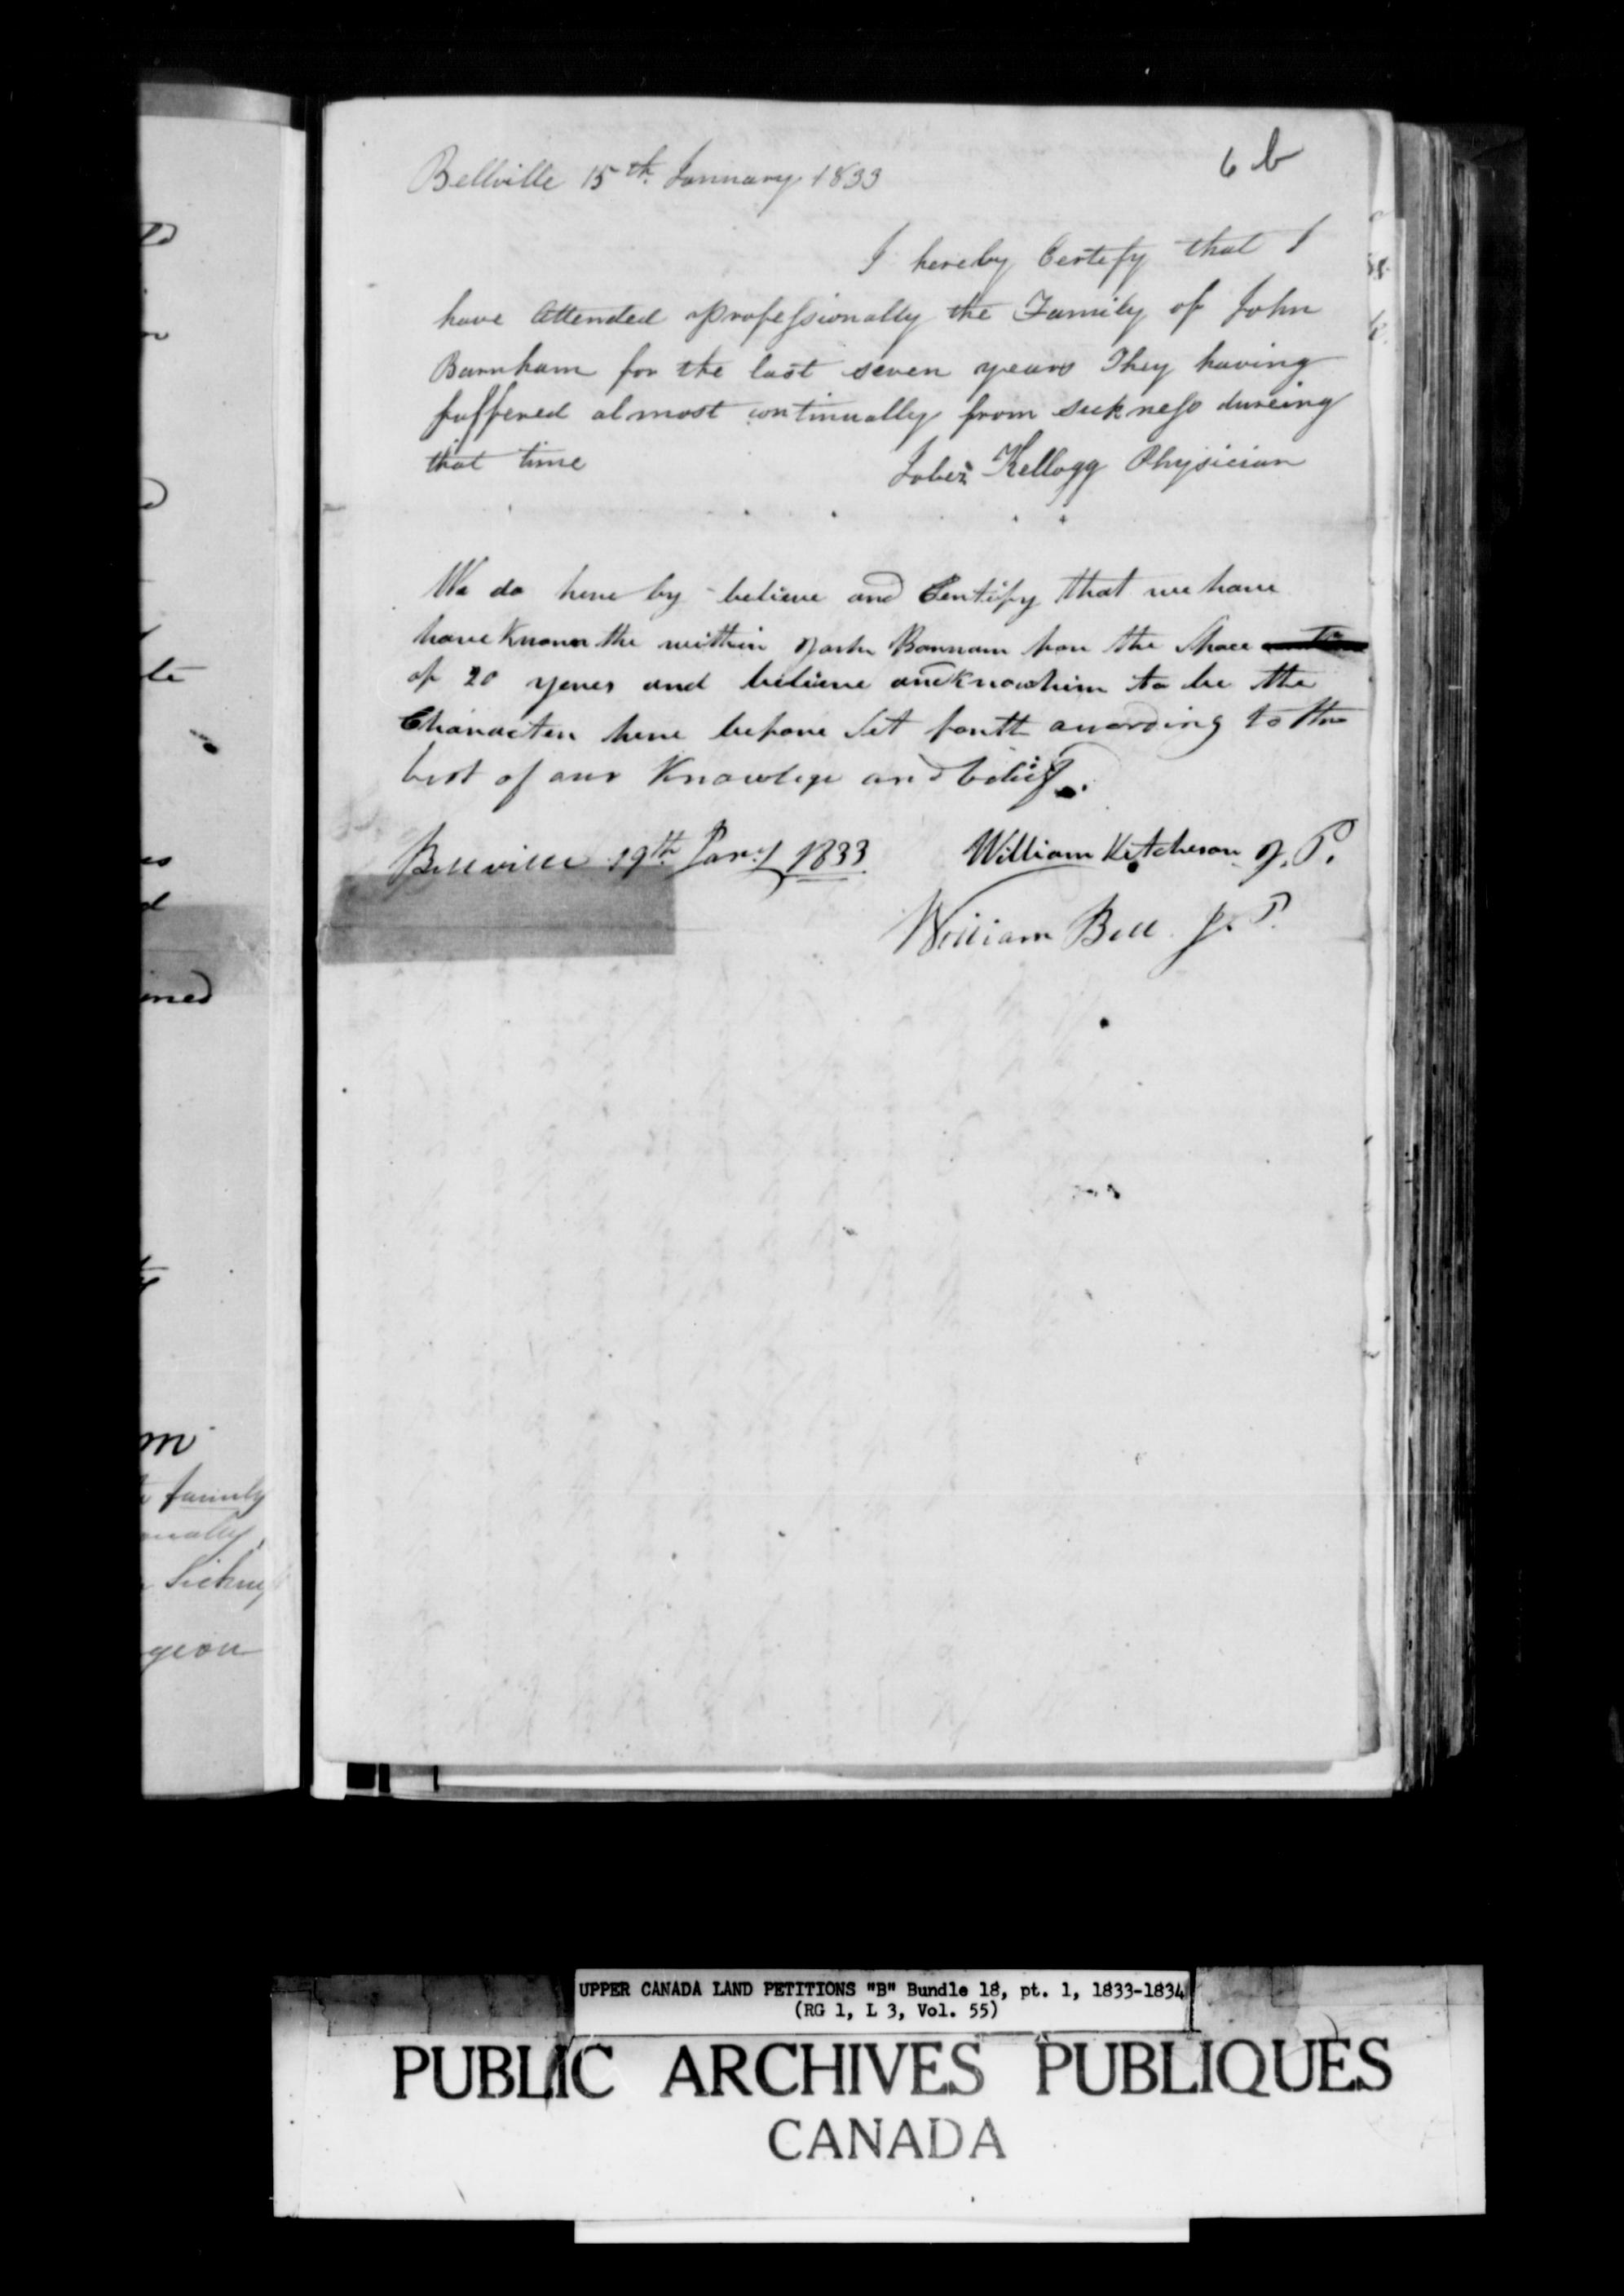 6 b
Bellville 15th. January 1833
I hereby Certify that I
have Attended professionally the Family of John
Barnham for the last seven years They having
suffered almost continually from sickness dureing
that time
Jabez Kellogg Physician
We do here by believe and Centify that we have
have Known the within John Bannam for the Space
of 20 yeares and believe and Know him to be the
Characten here before Set fortt according to the
best of our Knowlege and belief.
Bellville 19th Jany 1833
William Ketcheson J. P.
William Bell J. P.
te
es
d
ined
m
family
nually,
Sickness
geon
UPPER CANADA LAND PETITIONS "B" Bundle 18, pt. 1, 1833-1834
(RG 1, L 3, Vol. 55)
PUBLIC ARCHIVES PUBLIQUES
CANADA